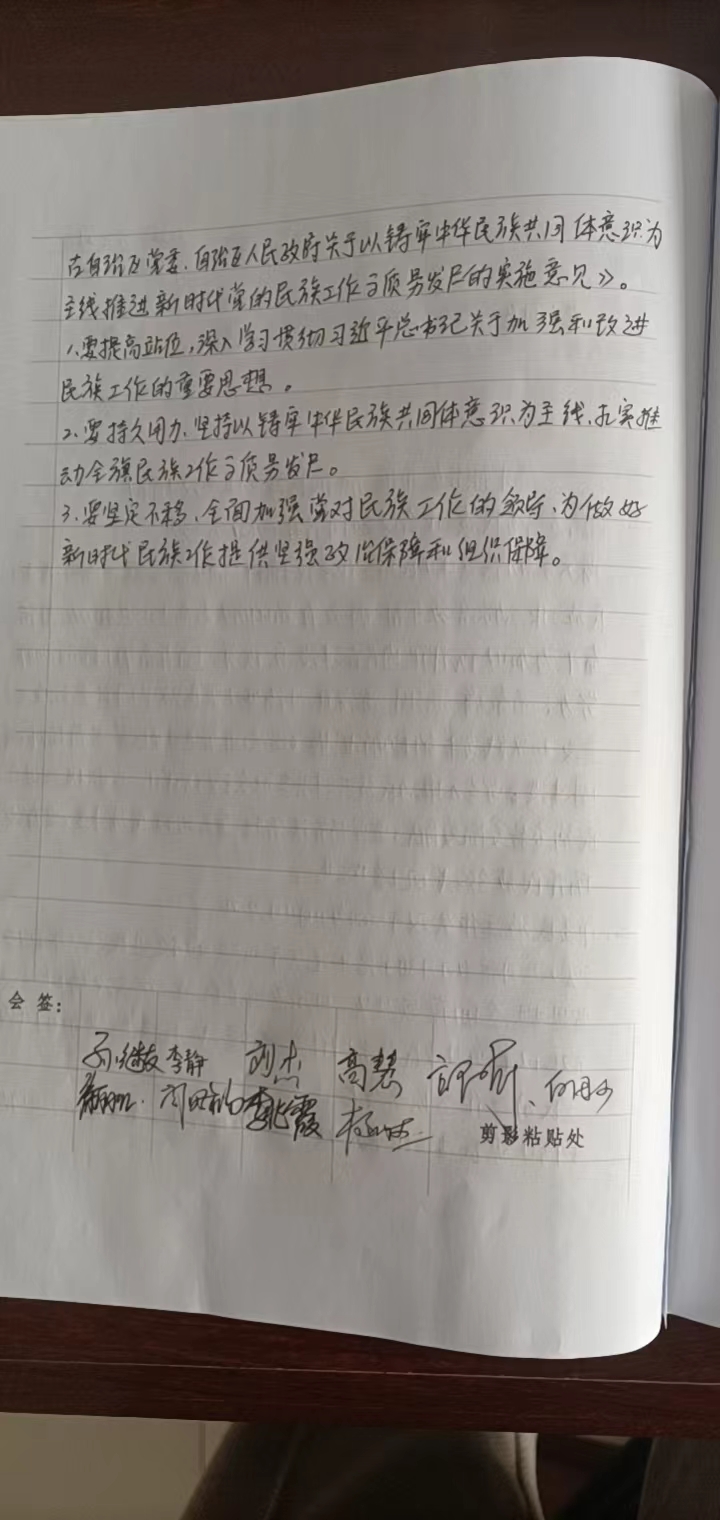 古自治区党委、自治区人民政府关于以铸牢中华民族共同体意识为
主线推进新时代党的民族工作高质量发展的实施意见》。
1、要提高站位,深入学习贯彻习近平总书记关于加强和改进
民族工作的重要思想。
2、要持久用力、坚持以铸牢中华民族共同体意识为主线、扎实推
动全旗民族工作高质量发展。
3、要坚定不移、全面加强党对民族工作的领导、为做好
新时代民族工作提供坚强政治保障和组织保障。
会签:
李静 刘杰 高慧
剪影粘贴处